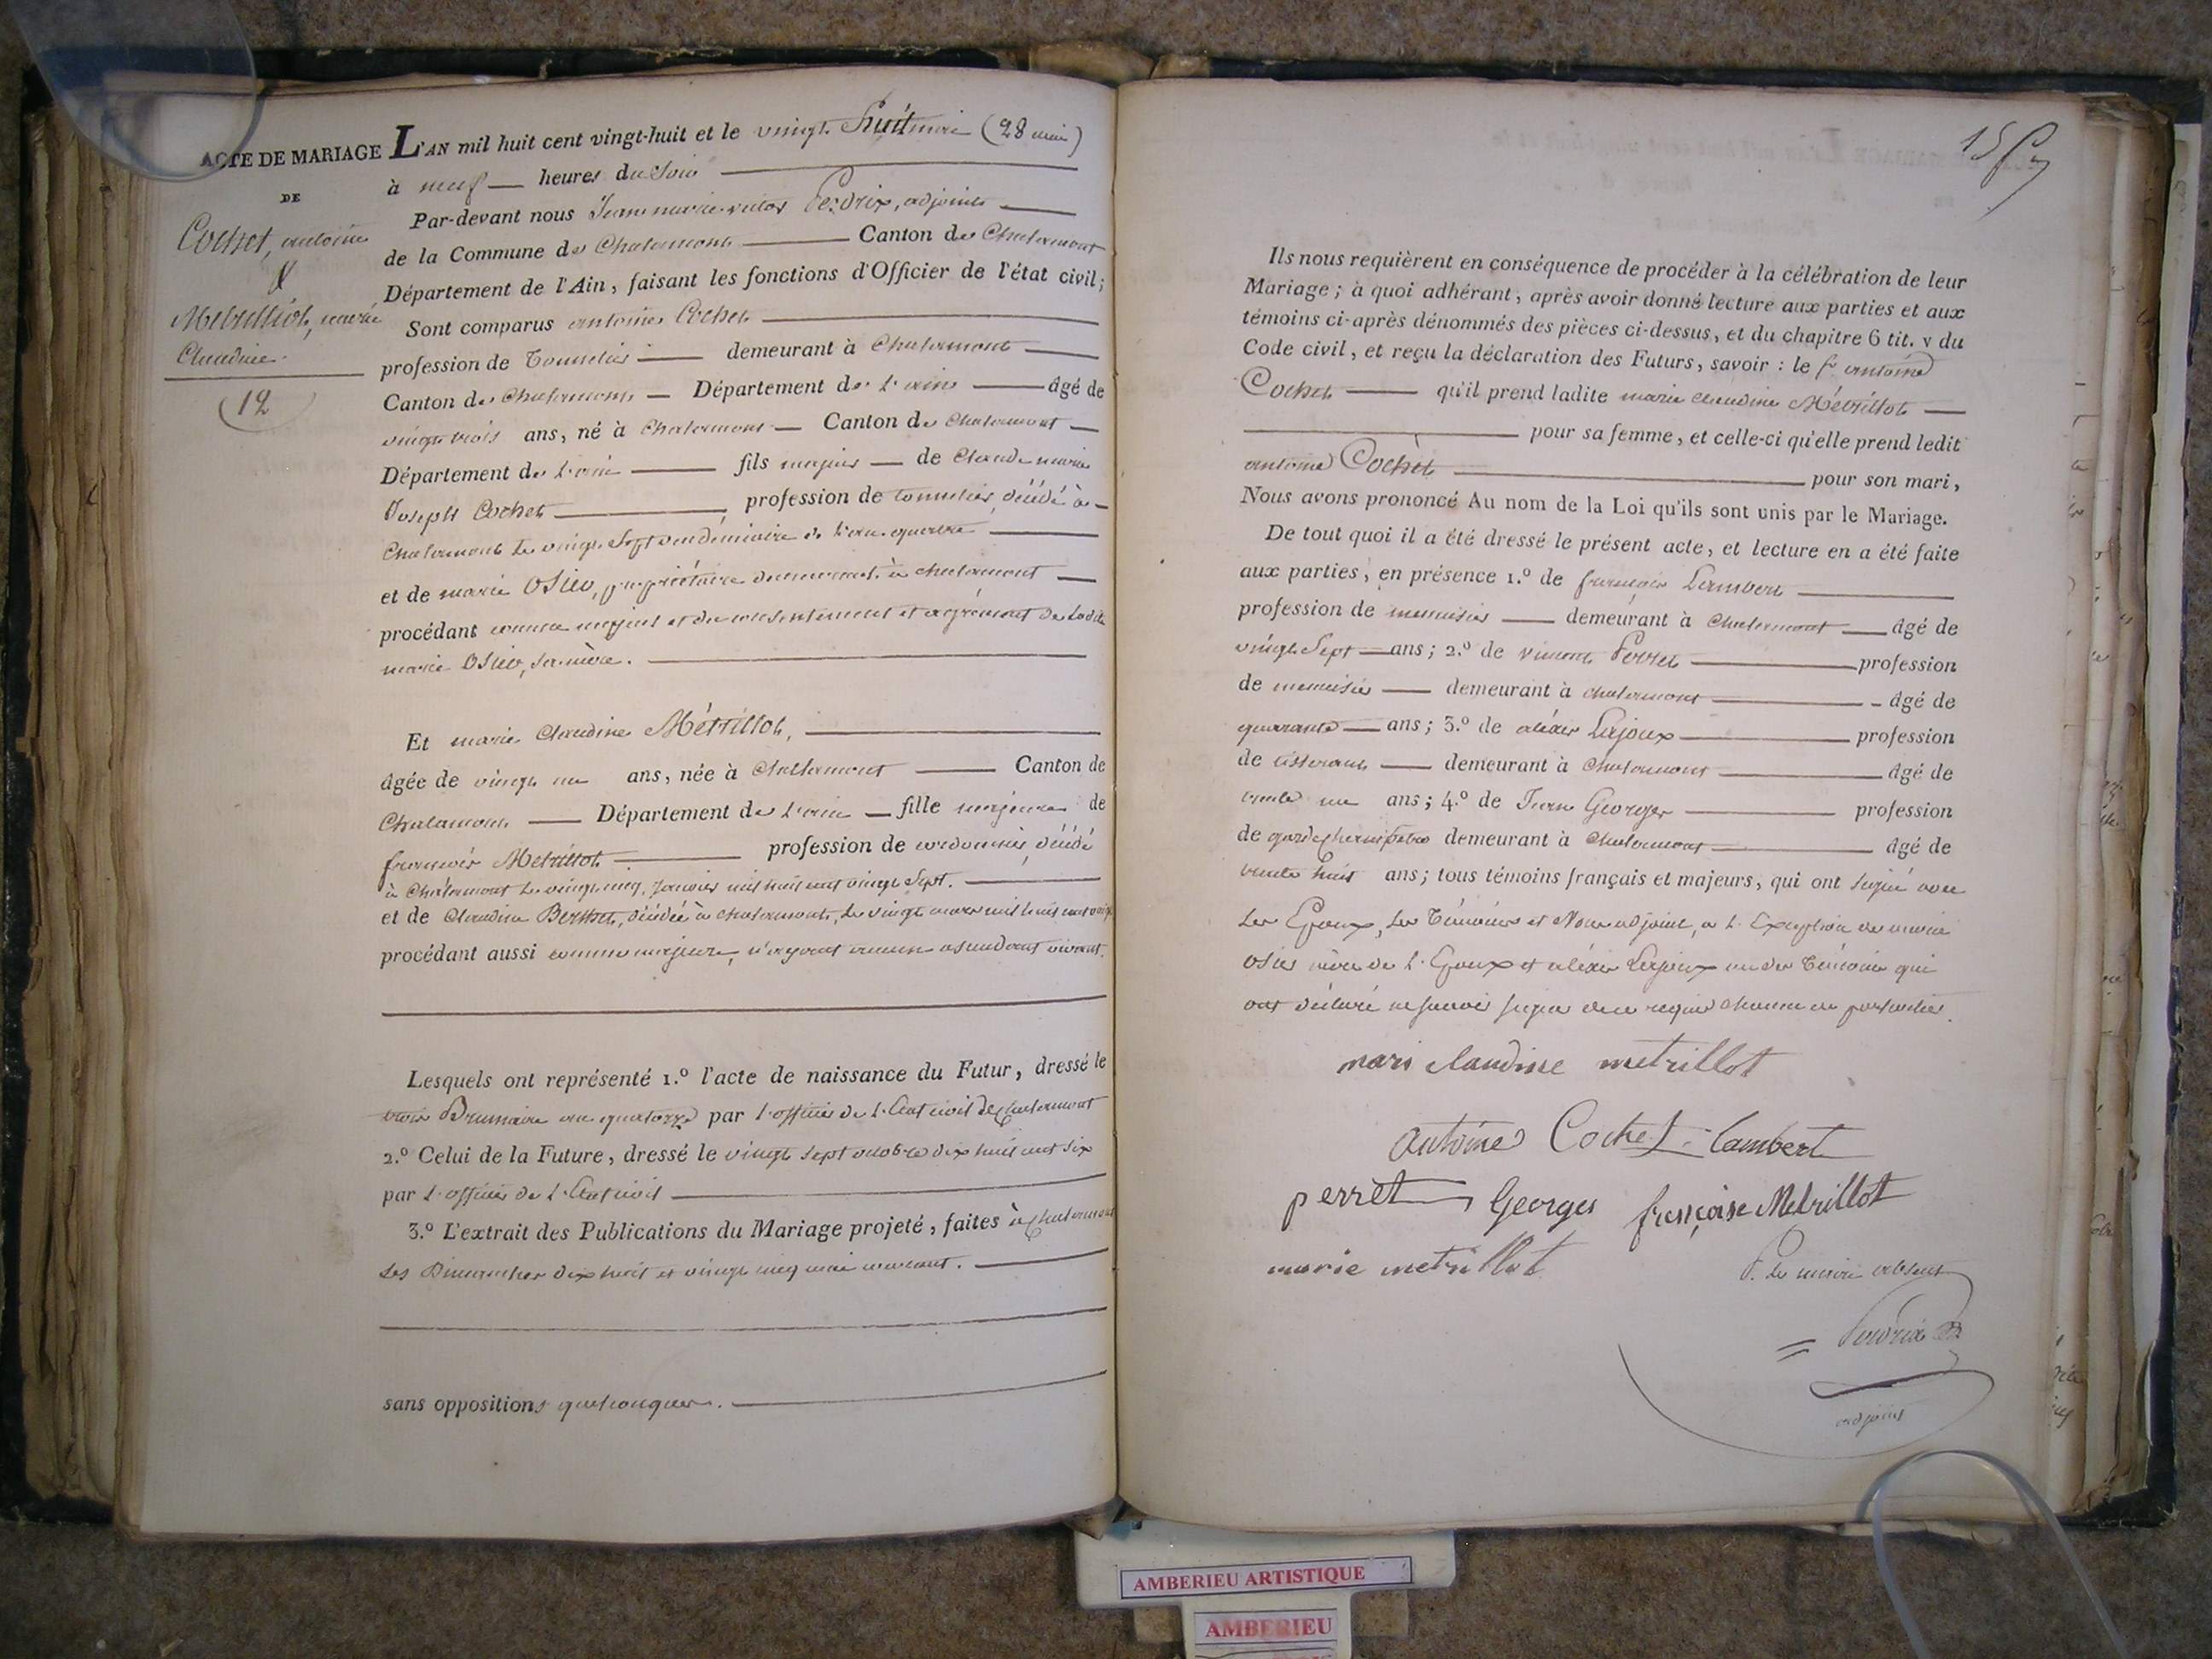 ACTE DE MARIAGE
DE
Cochet, antoine
&
Metrilliot, marie
Claudine.
12
L'AN mil huit cent vingt-huit et le vingt huit mai (28 mai)
à neuf heures du soir
Par-devant nous Jean marie victor Perdrix, adjoint
de la Commune de Chalamont Canton de Chalamont
Département de l'Ain, faisant les fonctions d'Officier de l'état civil;
Sont comparus antoine Cochet
profession de Tonnelier demeurant à Chalamont
Canton de Chalamont Département de l'ain âgé de
vingt trois ans, né à Chalamont Canton de Chalamont
Département de l'ain fils majeur de Claude marie
Joseph Cochet profession de tonnelier, décédé à
Chalamont le vingt sept vendémiaire de l'an
et de marie Osier, propriétaire demeurant à chalamont
procédant comme majeur et du consentement et agrément de ladite
marie Osier, sa mère.
Et marie Claudine Métrillot,
âgée de vingt un ans, née à Chalamont Canton de
Chalamont Département de l'ain fille majeure de
francois Metrillot profession de cordonnier, décédé
à Chalamont le vingt cinq janvier mil huit cent vingt sept.
et de Claudine Berthet, décédée à chalamont, le vingt mars mil huit cent vingt
procédant aussi comme majeure, n'ayant aucun ascendant vivant.
Lesquels ont représenté 1.º l'acte de naissance du Futur, dressé le
trois Brumaire an quatorze par l'officier de l'Etat civil de Chalamont
2.º Celui de la Future, dressé le vingt sept octobre dix huit cent six
par l'officier de l'Etat civil
3.º L'extrait des Publications du Mariage projeté, faites à Chalamont
les Dimanches dix huit et vingt cinq mai courant.
sans oppositions quelconques.
Ils nous requièrent en conséquence de procéder à la célébration de leur
Mariage; à quoi adhérant, après avoir donné lecture aux parties et aux
témoins ci-après dénommés des pièces ci-dessus, et du chapitre 6 tit. v du
Code civil, et reçu la déclaration des Futurs, savoir : le s.r antoine
Cochet qu'il prend ladite marie claudine Métrillot
pour sa femme, et celle-ci qu'elle prend ledit
antoine Cochet pour son mari,
Nous avons prononcé Au nom de la Loi qu'ils sont unis par le Mariage.
De tout quoi il a été dressé le présent acte, et lecture en a été faite
aux parties, en présence 1.º de françois Lambert
profession de menuisier demeurant à Chalamont âgé de
vingt sept ans; 2.º de vincent Perret profession
de menuisier demeurant à chalamont âgé de
quarante ans; 3.º de aléxis Lajoux profession
de tisserant demeurant à Chalamont âgé de
trente un ans; 4.º de Jean Georges profession
de garde champêtre demeurant à Chalamont âgé de
trente huit ans; tous témoins français et majeurs, qui ont signé avec
les Epoux, les Témoins et Nous adjoint, a l'Exception de marie
osier mère de l'Epoux et aléxis Lajoux un des Témoins qui
ont déclaré ne savoir signer de ce requis chacun en particulier.
mari claudine metrillot
antoine Cochet Lambert
perret Georges françoise Metrillot
marie metrillot
P. le maire absent
Perdrix
adjoint
AMBERIEU ARTISTIQUE
AMBERIEU